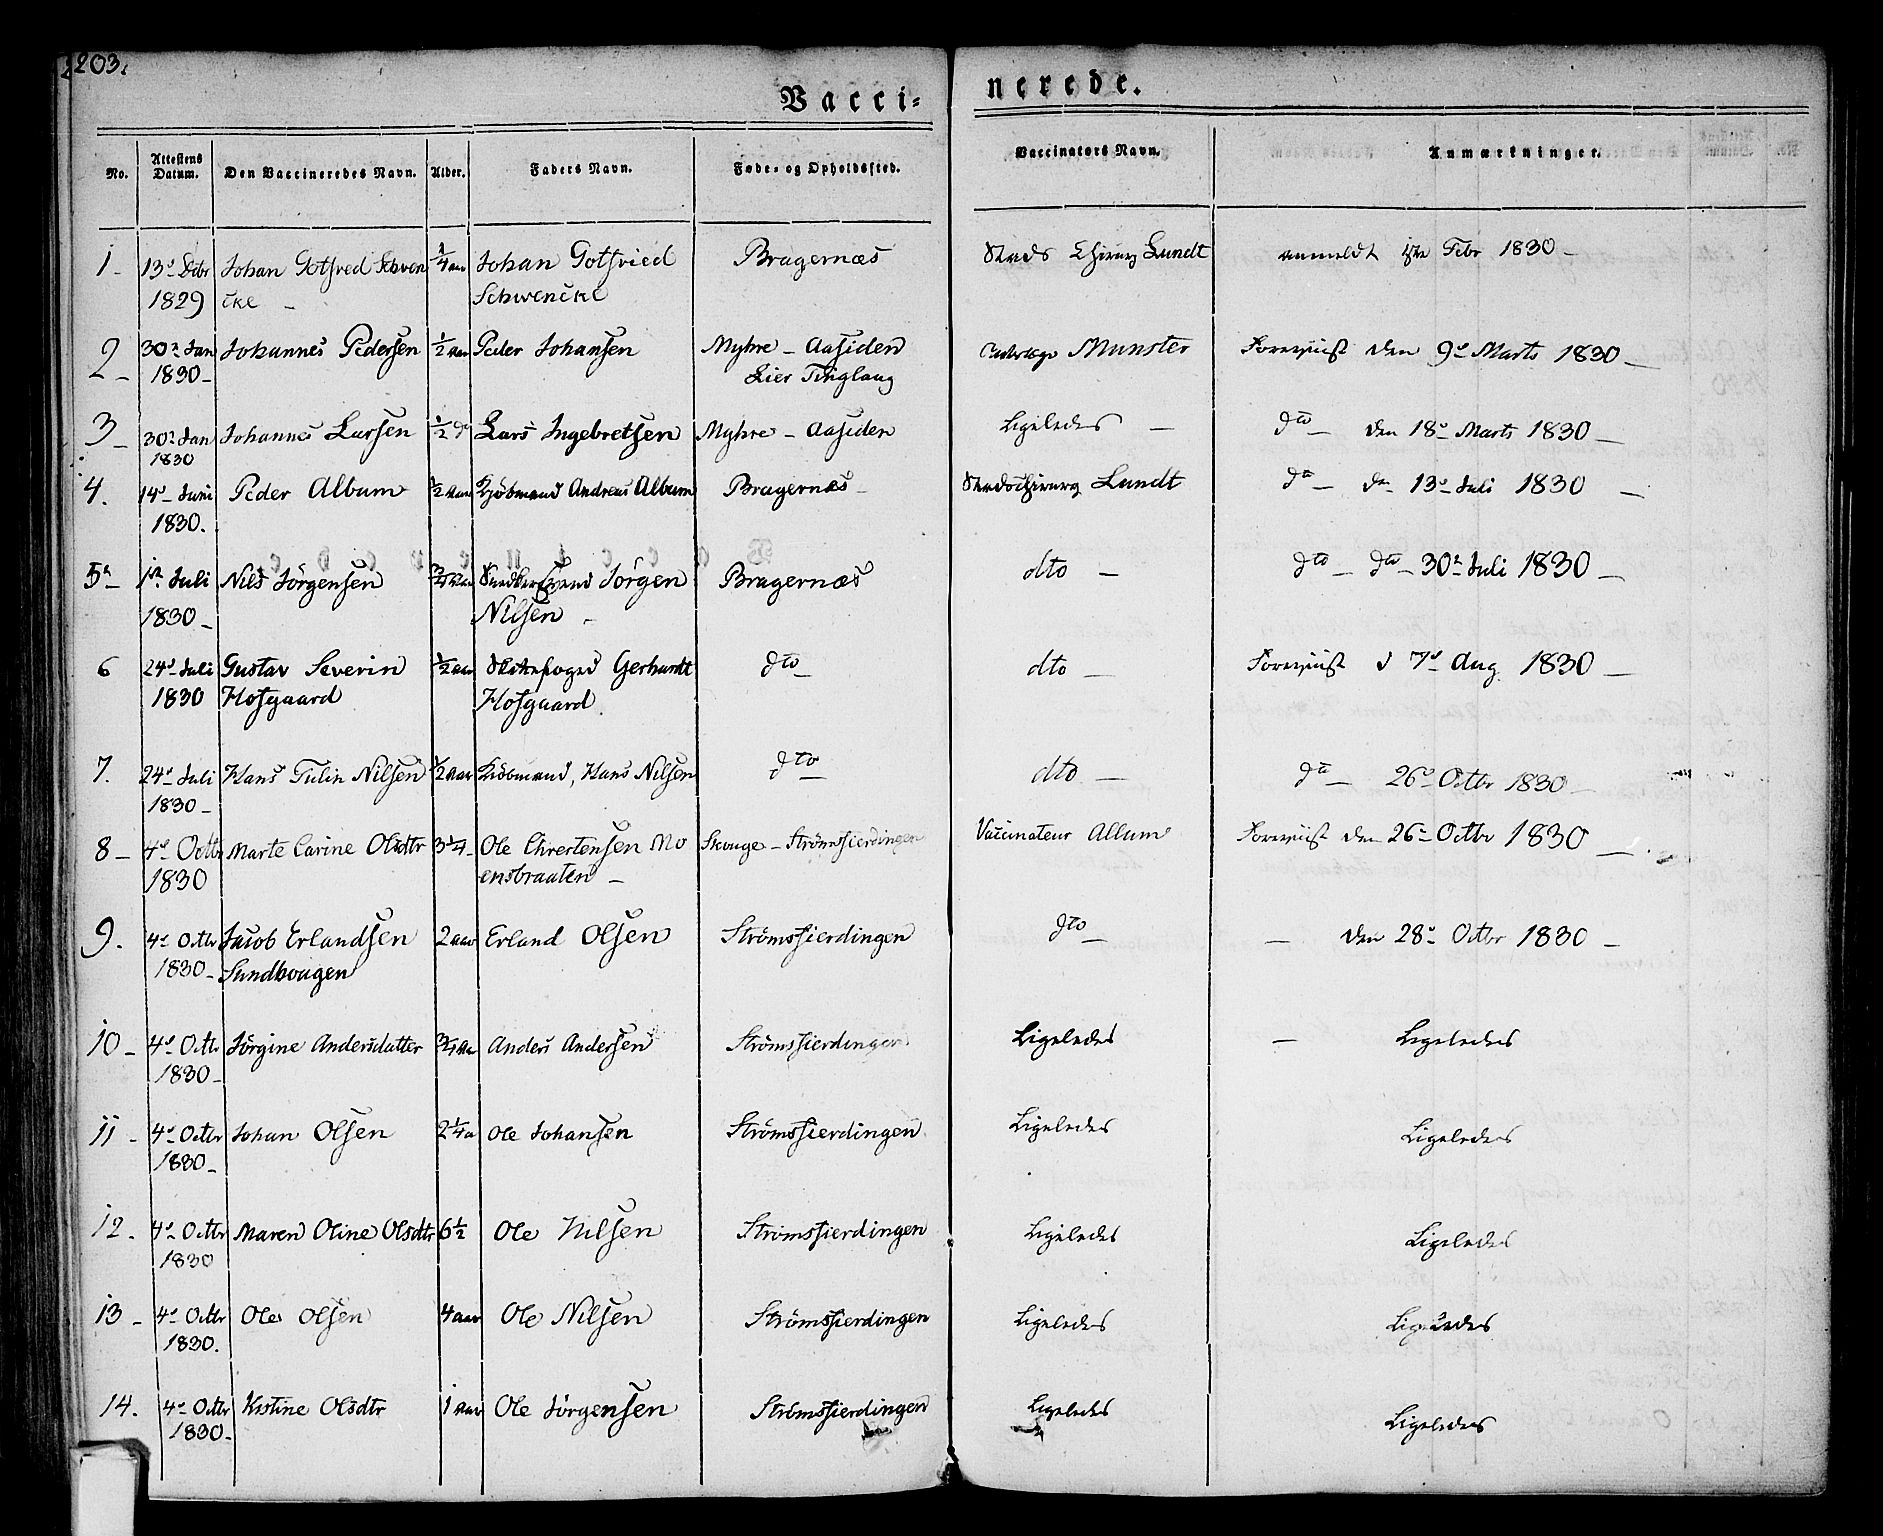 203.
Vacci- nerede.
No. Attestens Datum. Den Vaccineredes Navn. Alder. Faders Navn. Føde- og Opholdssted. Vaccinators Navn. Anmærkninger.
1 - 13de Debr Johan Gotfred Schwen ¼ aar Johan Gotfried Bragernæs Stads Chirurg Lundt anmeldt Febr 1830 -
1829 cke - Schwencke
2 - 30te Jan Johannes Pedersen ½ aar Peder Johansen Myhre - Aasiden Munster Foreviist den 9de Marts 1830 -
1830 - Lier Tinglaug
3 - 30te Jan Johannes Larsen ½ do Lars Ingebretsen Myhre - Aasiden Ligeledes - dto - den 18de Marts 1830 -
1830
4. 14de Juni Peder Album ½ aar Kjøbmand Andreas Album Bragernæs - Stadschirurg Lundt do - den 13de Juli 1830 -
1830.
5 - 1te Juli Nils Jörgensen ¾ aar Jörgen Bragernæs dto - dto - dto - 30te Juli 1830 -
1830 - Nilsen -
6 24de Juli Gustav Severin ½ aar Gerhardt dto - dto - Foreviist d 7de Aug 1830 -
1830 Hofgaard Hofgaard
7. 24de Juli Hans Tulin Nilsen ½ aar Kiöbmand, Hans Nilsen dto - dto - do - 26de Octbr 1830 -
1830 -
8 - 4de Octbr Marte Carine Olsdtr 3¼ - Ole Chrestensen Mo Skouge - Strömsfierdingen Vaccinateur Allum Foreviist den 26de Octbr 1830 -
1830 ensbraaten -
9. 4de Octbr Jacob Erlandsen 2 aar Erland Olsen Strömsfierdingen dto - - den 28de Octbr 1830 -
1830 - Sundhougen
10 - 4de Octbr Jörgine Andersdatter ¾ aar Anders Andersen Strömsfierdingen Ligeledes - Ligeledes
1830 -
11 - 4de Octbr Johan Olsen 2¼ a Ole Johansen Strömsfierdingen Ligeledes Ligeledes
1830 -
12. 4de Octbr Maren Oline Olsdtr 6½ Ole Nilsen Strömsfierdingen Ligeledes Ligeledes
1830
13 - 4de Octbr Ole Olsen 4 aar Ole Nilsen Strömsfierdingen Ligeledes Ligeledes
1830.
14. 4de Octbr Kistine Olsdtr 1 aar Ole Jörgensen Strömsfierdingen Ligeledes Ligeledes
1830 -